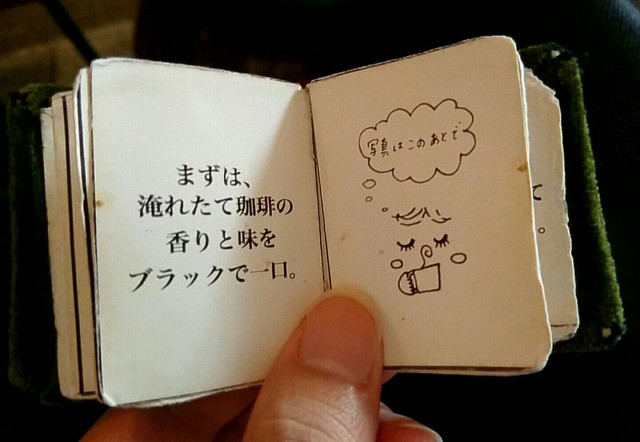 まずは、
淹れたて珈琲の
香りと味を
ブラックで一口。
写真はこのあとで
て
。